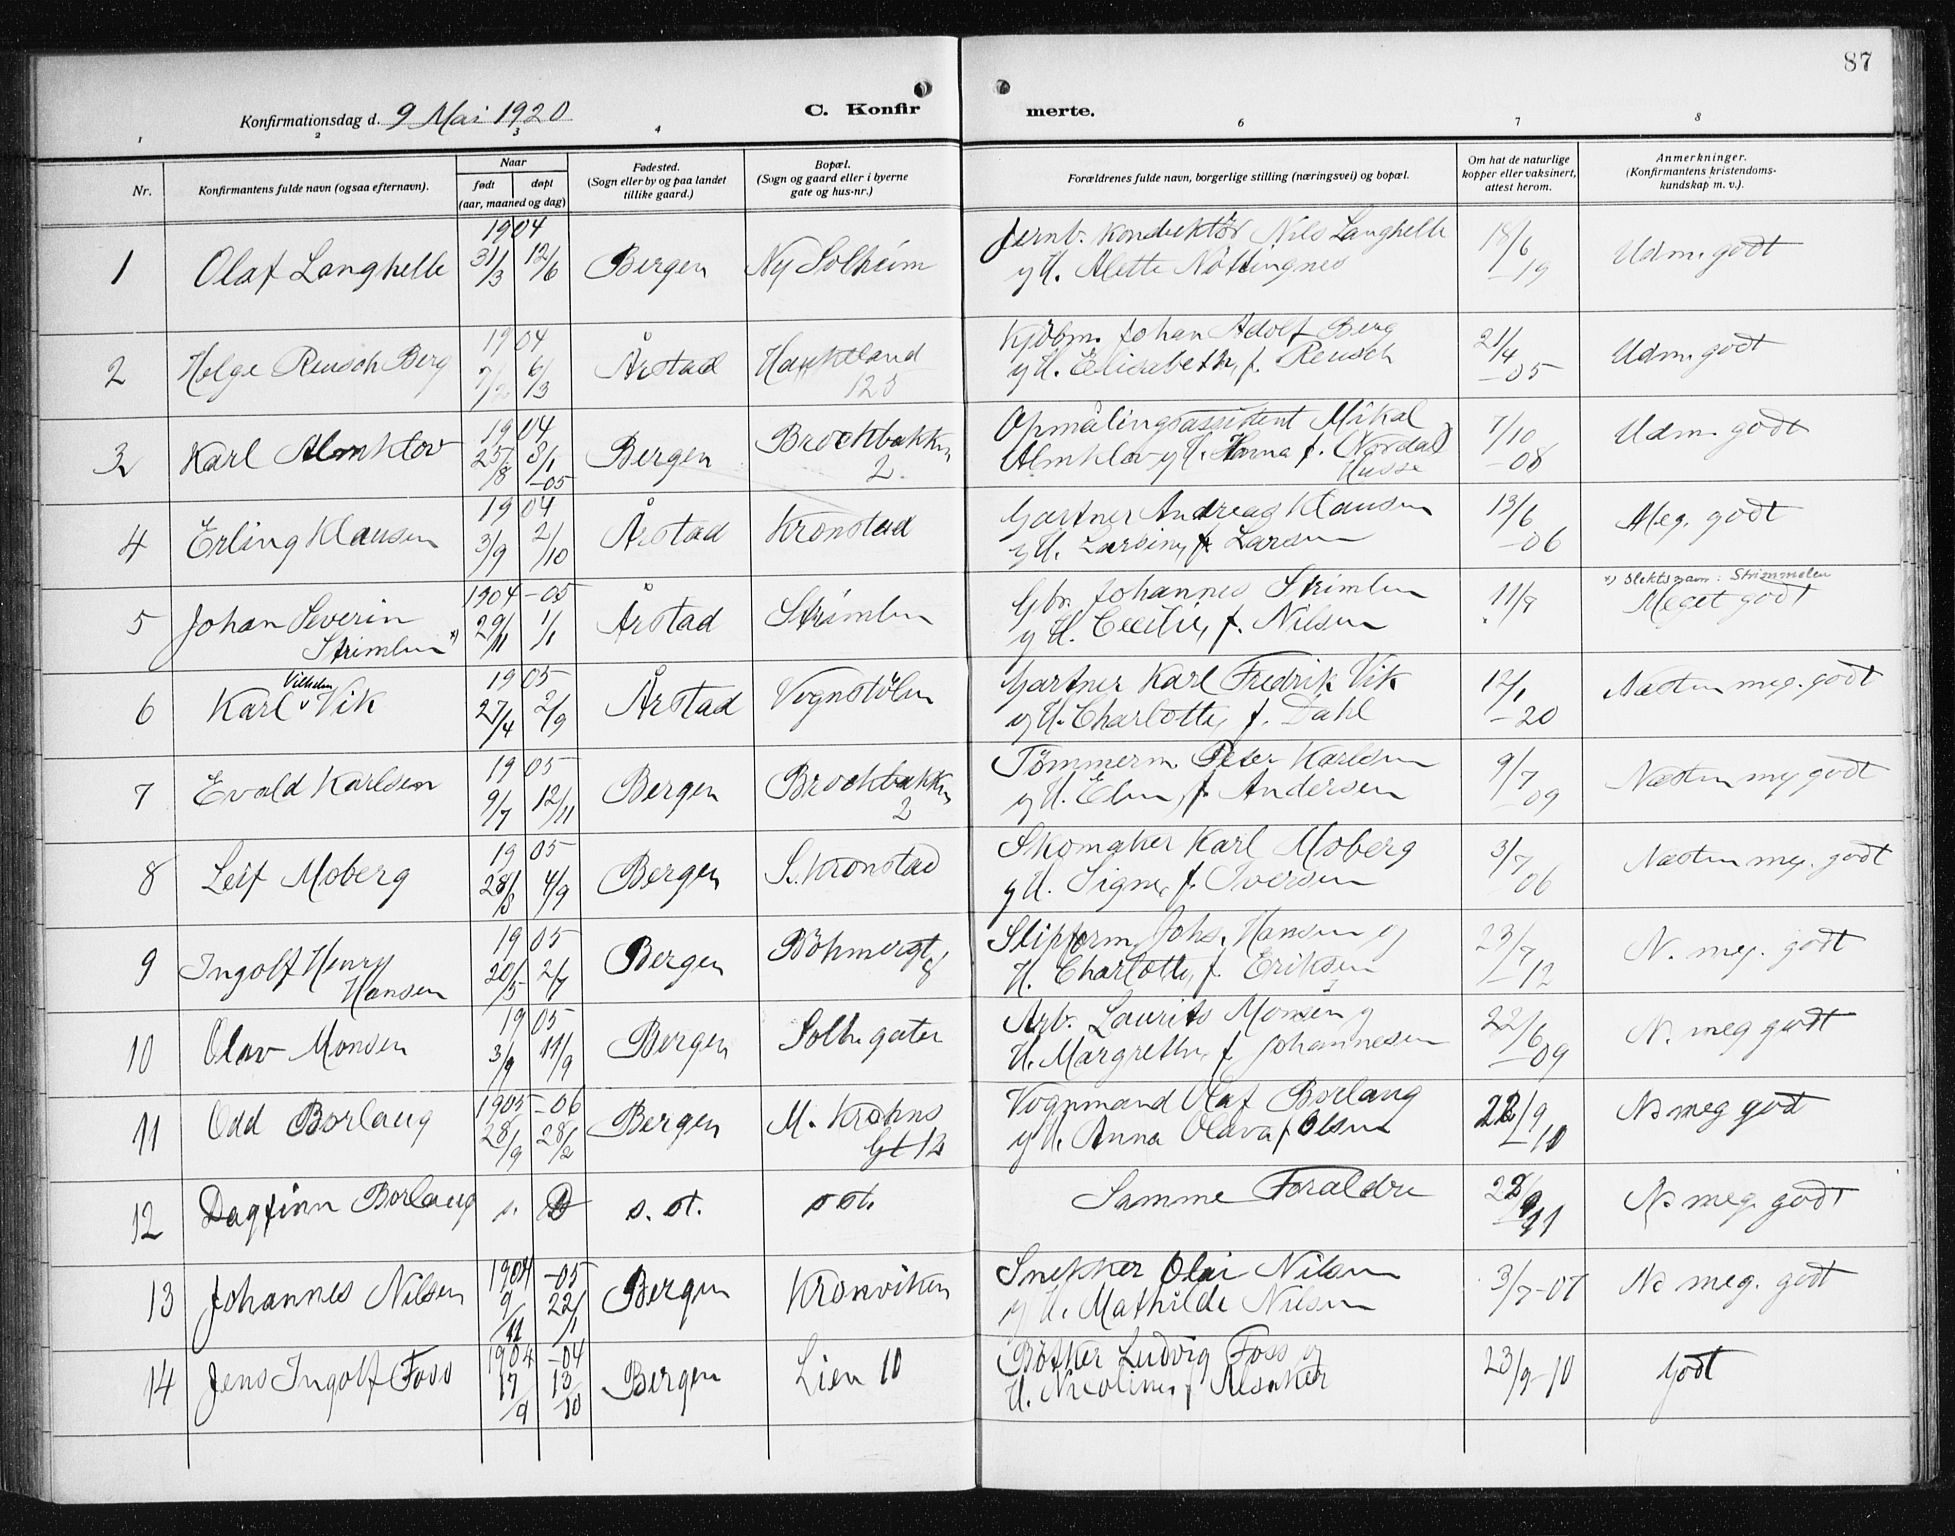 87
Konfirmationsdag d. 9 Mai 1920 C. Konfirmerte.
1 2 3 4 6 7 8
Nr. Konfirmantens fulde navn (ogsaa efternavn). Naar født døpt (aar, maaned og dag) Fødested. (Sogn eller by og paa landet tillike gaard.) Bopæl. (Sogn og gaard eller i byerne gate og hus-nr.) Forældrenes fulde navn, borgerlige stilling (næringsvei) og bopæl. Om hat de naturlige kopper eller vaksinert, attest herom. Anmerkninger. (Konfirmantens kristendomskundskap m. v.).
1904
1 Olaf Langhelle 31/3 12/6 Bergen Ny Solheim Jernb. konduktør Nils Langhelle 18/6 Udm. godt
og H. Alette Nøttingnes -19
1904
2 Helge Reusch Berg 6/3 Årstad Haukeland 125 Kjøbm. Johan Adolf Berg 21/4 Udm. godt
og H. Elisabeth, f. Reusch -05
1904
3 Karl Almklov 25/8 3/1 -05 Bergen Brochbakken 2. Opmålingsassistent Mikal 7/10 Udm. godt
Almklov og H. Hanna f. Nordal Husse -08
1904
4 Erling Klausen 3/9 2/10 Årstad Kronstad Gartner Andreas Klausen 13/6 Meg. godt
og H. Larsine, f. Larsen -06
1904 -05
*) Slektsnavn: Strimmelen
5 Johan Severin 29/11 1/1 Årstad Strimlen Gbr. Johannes Strimlen 11/9 Meget godt
Strimlen *) og H. Cecilie, f. Nilsen
1905
6 Karl Vilhelm Vik 27/4 2/9 Årstad Vognstølen Gartner Karl Fredrik Vik 12/1 Næsten meg. godt
og H. Charlotte, f. Dahl -20
1905
7 Evald Karlsen 9/7 12/11 Bergen Brochbakken 2 Tømmerm. Peter Karlsen 9/7 Næsten meg godt
og H. Elen, f. Andersen -09
1905
8 Leif Moberg 28/8 4/9 Bergen S. Kronstad Skomaker Karl Moberg 3/7 Næsten meg. godt
og H. Signe, f. Iversen -06
1905
9 Ingolf Henry 20/5 2/7 Bergen Bøhmergt 8 Slipform. Johs. Hansen og 23/7 N. meg. godt
Hansen H. Charlotte, f. Eriksen -12
1905
10 Olav Monsen 3/9 11/9 Bergen Solh. gaten Arb. Laurits Monsen og 22/6 N. meg godt
H. Margrethe, f. Johannesen -09
1905 -06
11 Odd Borlaug 28/9 28/2 Bergen M. Krohns Gt 12 Vognmand Olaf Borlaug 22/9 N meg godt
og H. Anna Olava f Olsen -10
12 Dagfinn Borlaug s. D s. st. s st. Samme Forældre N meg. godt
1904 -05
13 Johannes Nilsen 9/11 22/1 Bergen Kronviken Snekker Olai Nilsen 3/7-07 N meg. godt
og H. Mathilde Nilsen
1904 -04
14 Jens Ingolf Foss 17/9 13/10 Bergen Lien 10 Bøtker Ludvig Foss og 23/9-10 Godt
H. Nicoline, f Alsaker